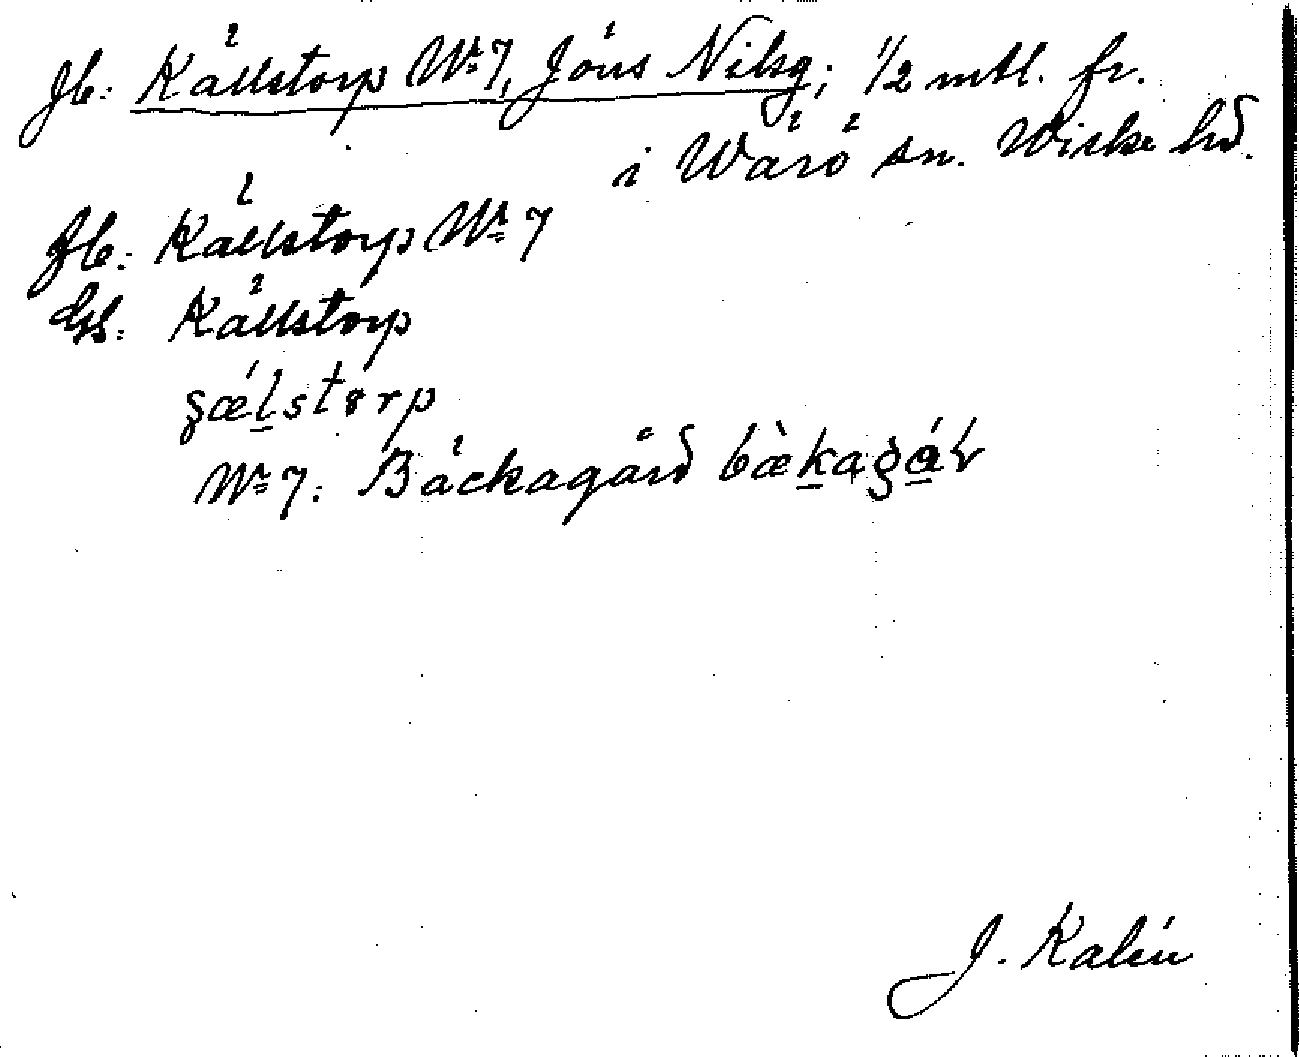 Jb: Källstorp Nr 7, Jöns Nilsg; 1/2 mtl. fr.
i Wärö sn. Wiske hd.
Jb: Källstorp Nr 7
Gs: Källstorp
ʒǽlstɵrp
Nr 7: Bäckagård bæ̀kagár
J. Kalén